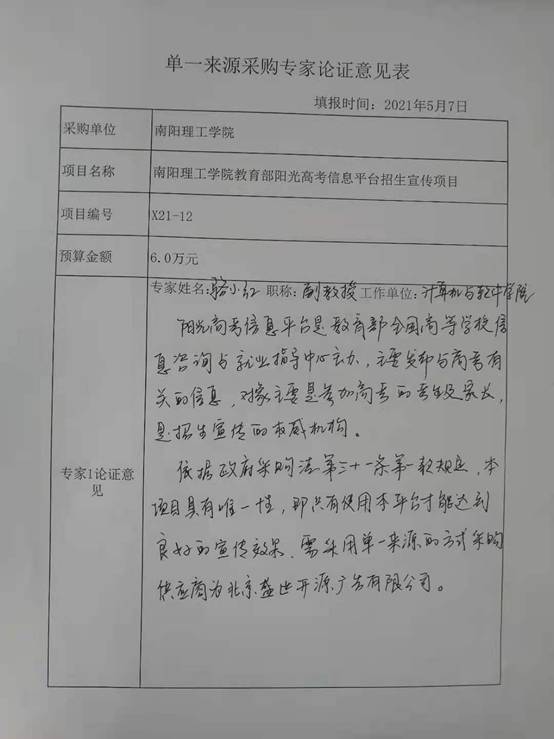 单一来源采购专家论证意见表
填报时间：2021年5月7日
采购单位 南阳理工学院
项目名称 南阳理工学院教育部阳光高考信息平台招生宣传项目
项目编号 X21-12
预算金额 6.0万元
专家姓名:骆小红 职称:副教授 工作单位:计算机与软件学院
阳光高考信息平台是教育部全国高等学校信
息咨询与就业指导中心主办，主要发布与高考有
关的信息，对象主要是参加高考的考生及家长，
是招生宣传的权威机构。
专家1论证意
见
依据政府采购法第三十一条第一款规定，本
项目具有唯一性，即只有使用本平台才能达到
良好的宣传效果，需采用单一来源的方式采购
供应商为北京盛世开源广告有限公司。